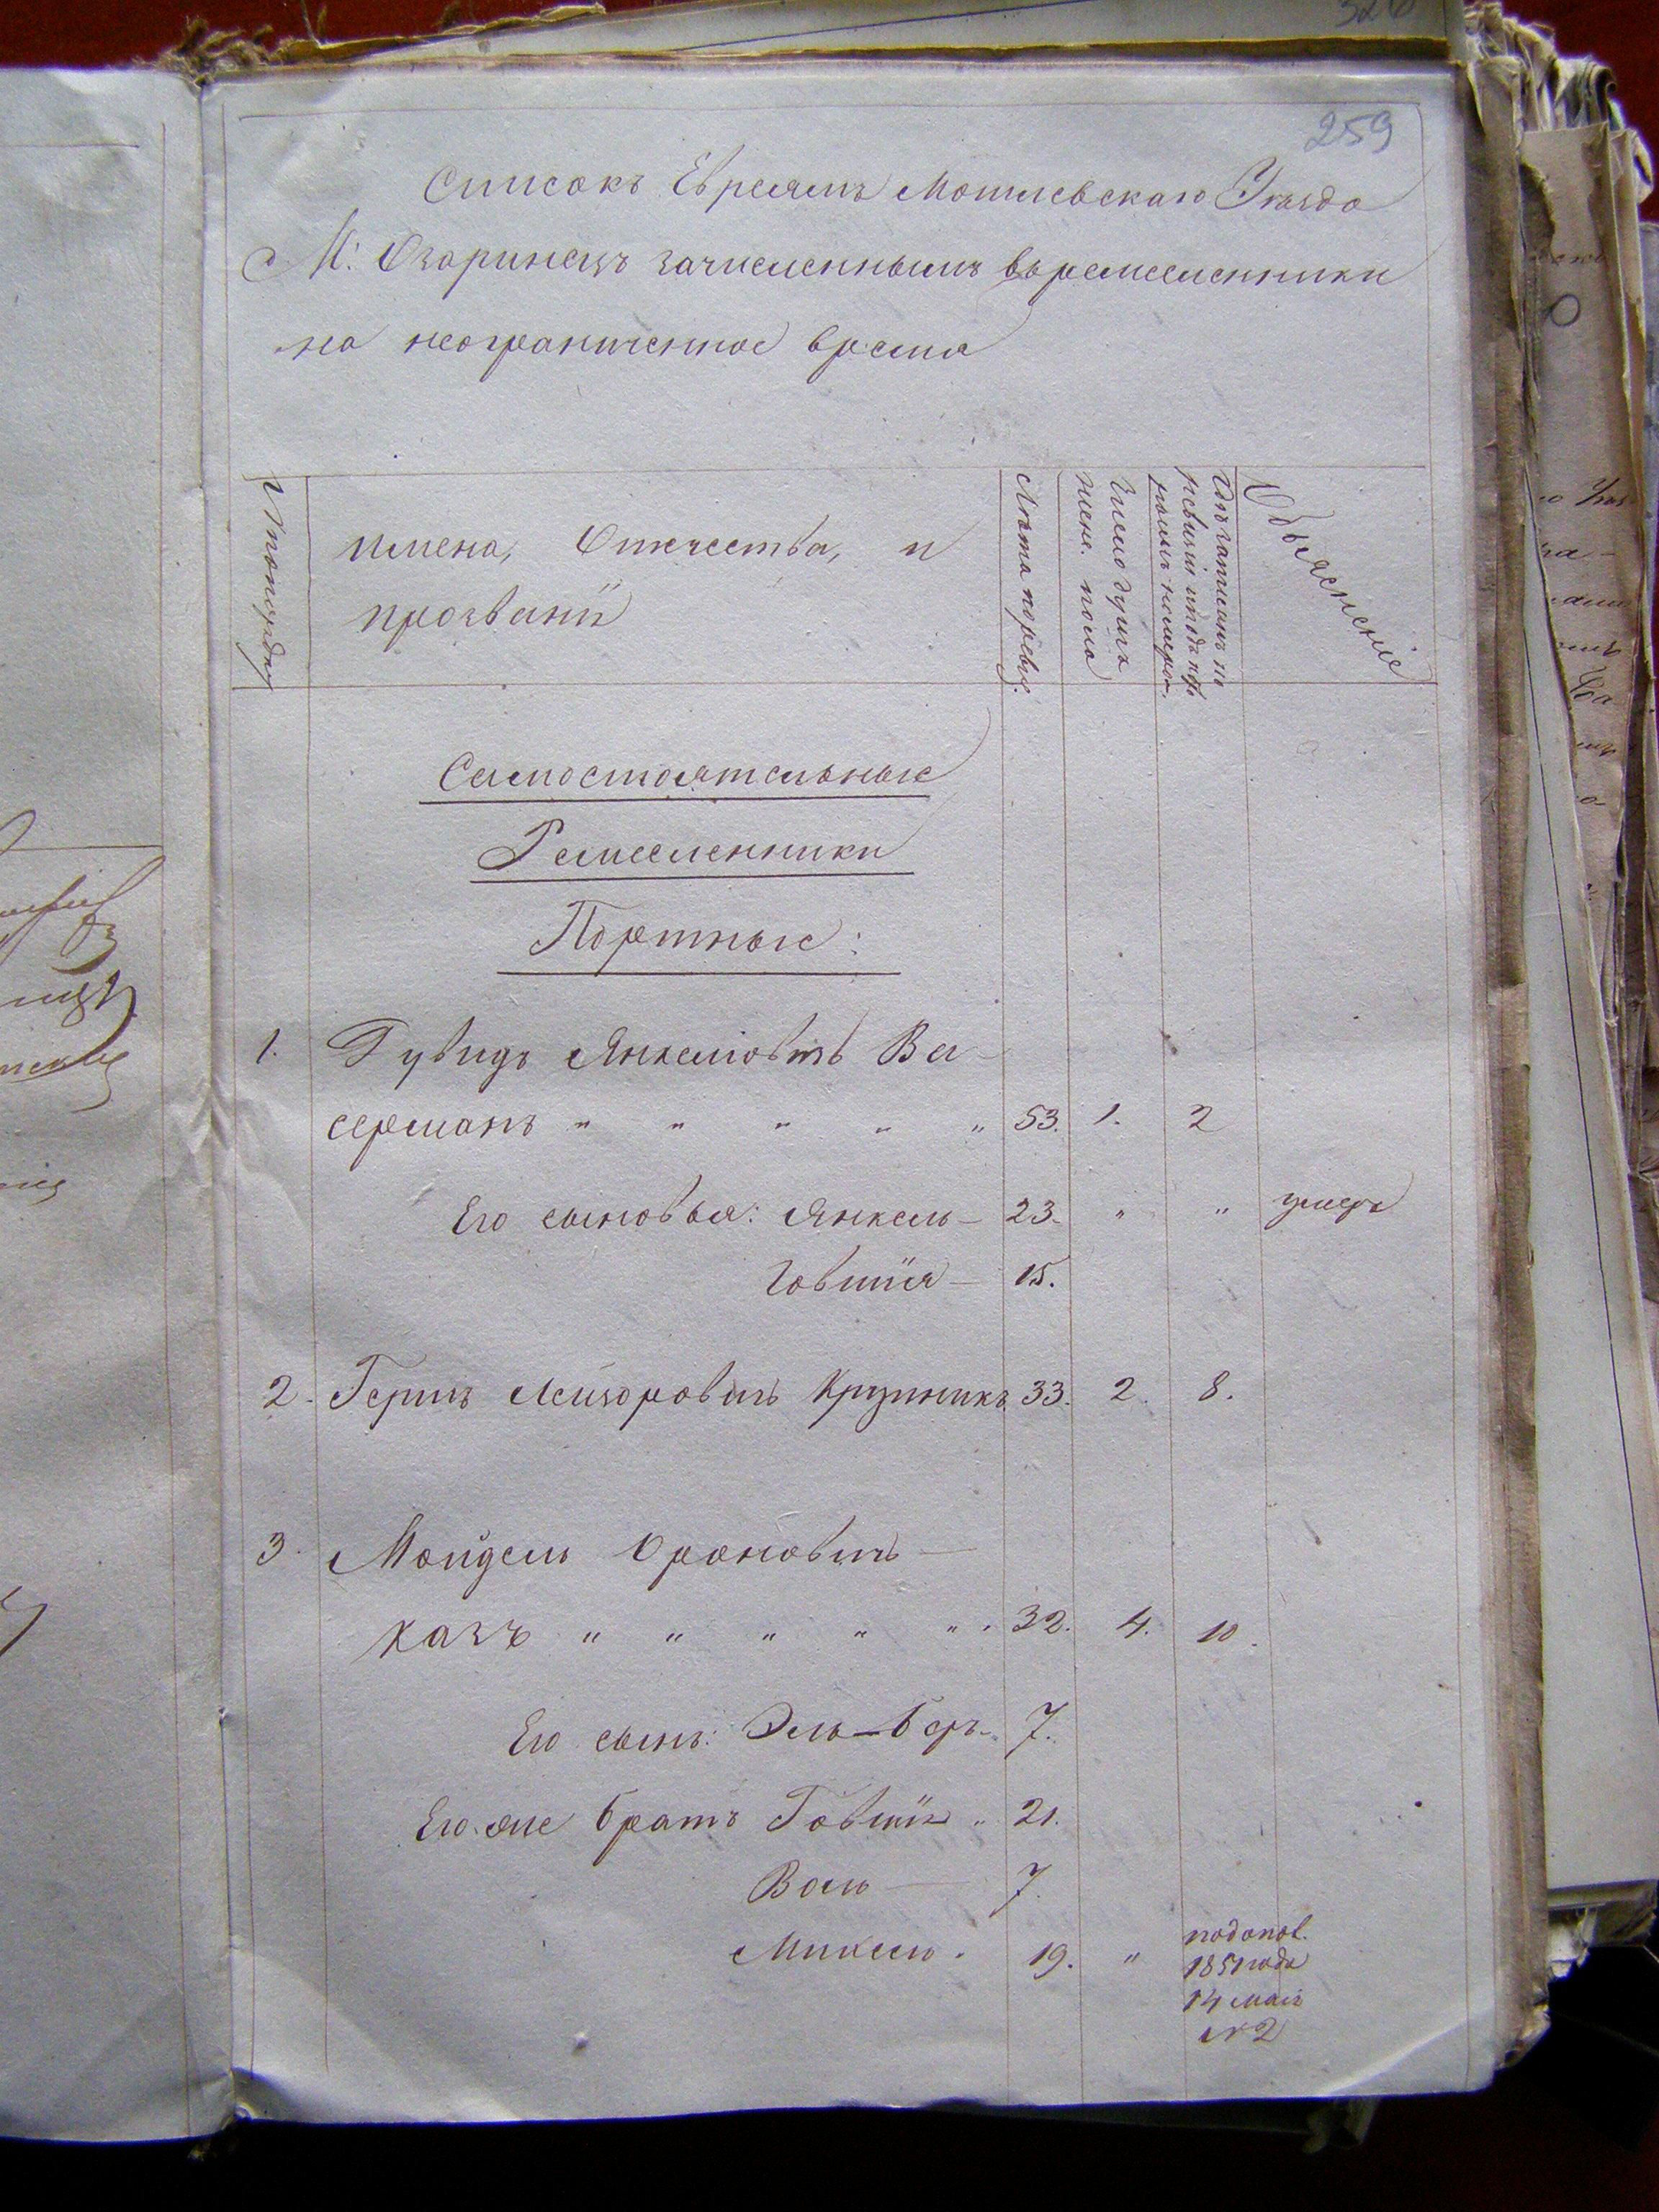 259
Списокъ Евреямъ Могилевскаго Уѣзда
М: Озаринецъ зачисленнымъ въ ремесленники
на неограниченное время
имена, Отчества, и
прозваніи
Лѣта по ревиз.
Число душъ
женс. пола
Объясненіе
Самостоятельные
Ремесленники
Портные:
1. Гувидъ Янкелювичъ Ва-
серманъ " " " " " 53. 1. 2
Его сыновья: Янкель — 23. " " умеръ
Говшія — 15.
2. Гершъ Лейзоровичъ Крупникъ 33. 2. 8.
3. Мойдель Ороновичъ —
Кацъ " " " " " 32. 4. 10.
Его сынъ: Эль-Беръ 7.
Его же братъ Говшія " 21.
Воль — 7.
Микель. 19. "
1851 года
14 мая
№ 2